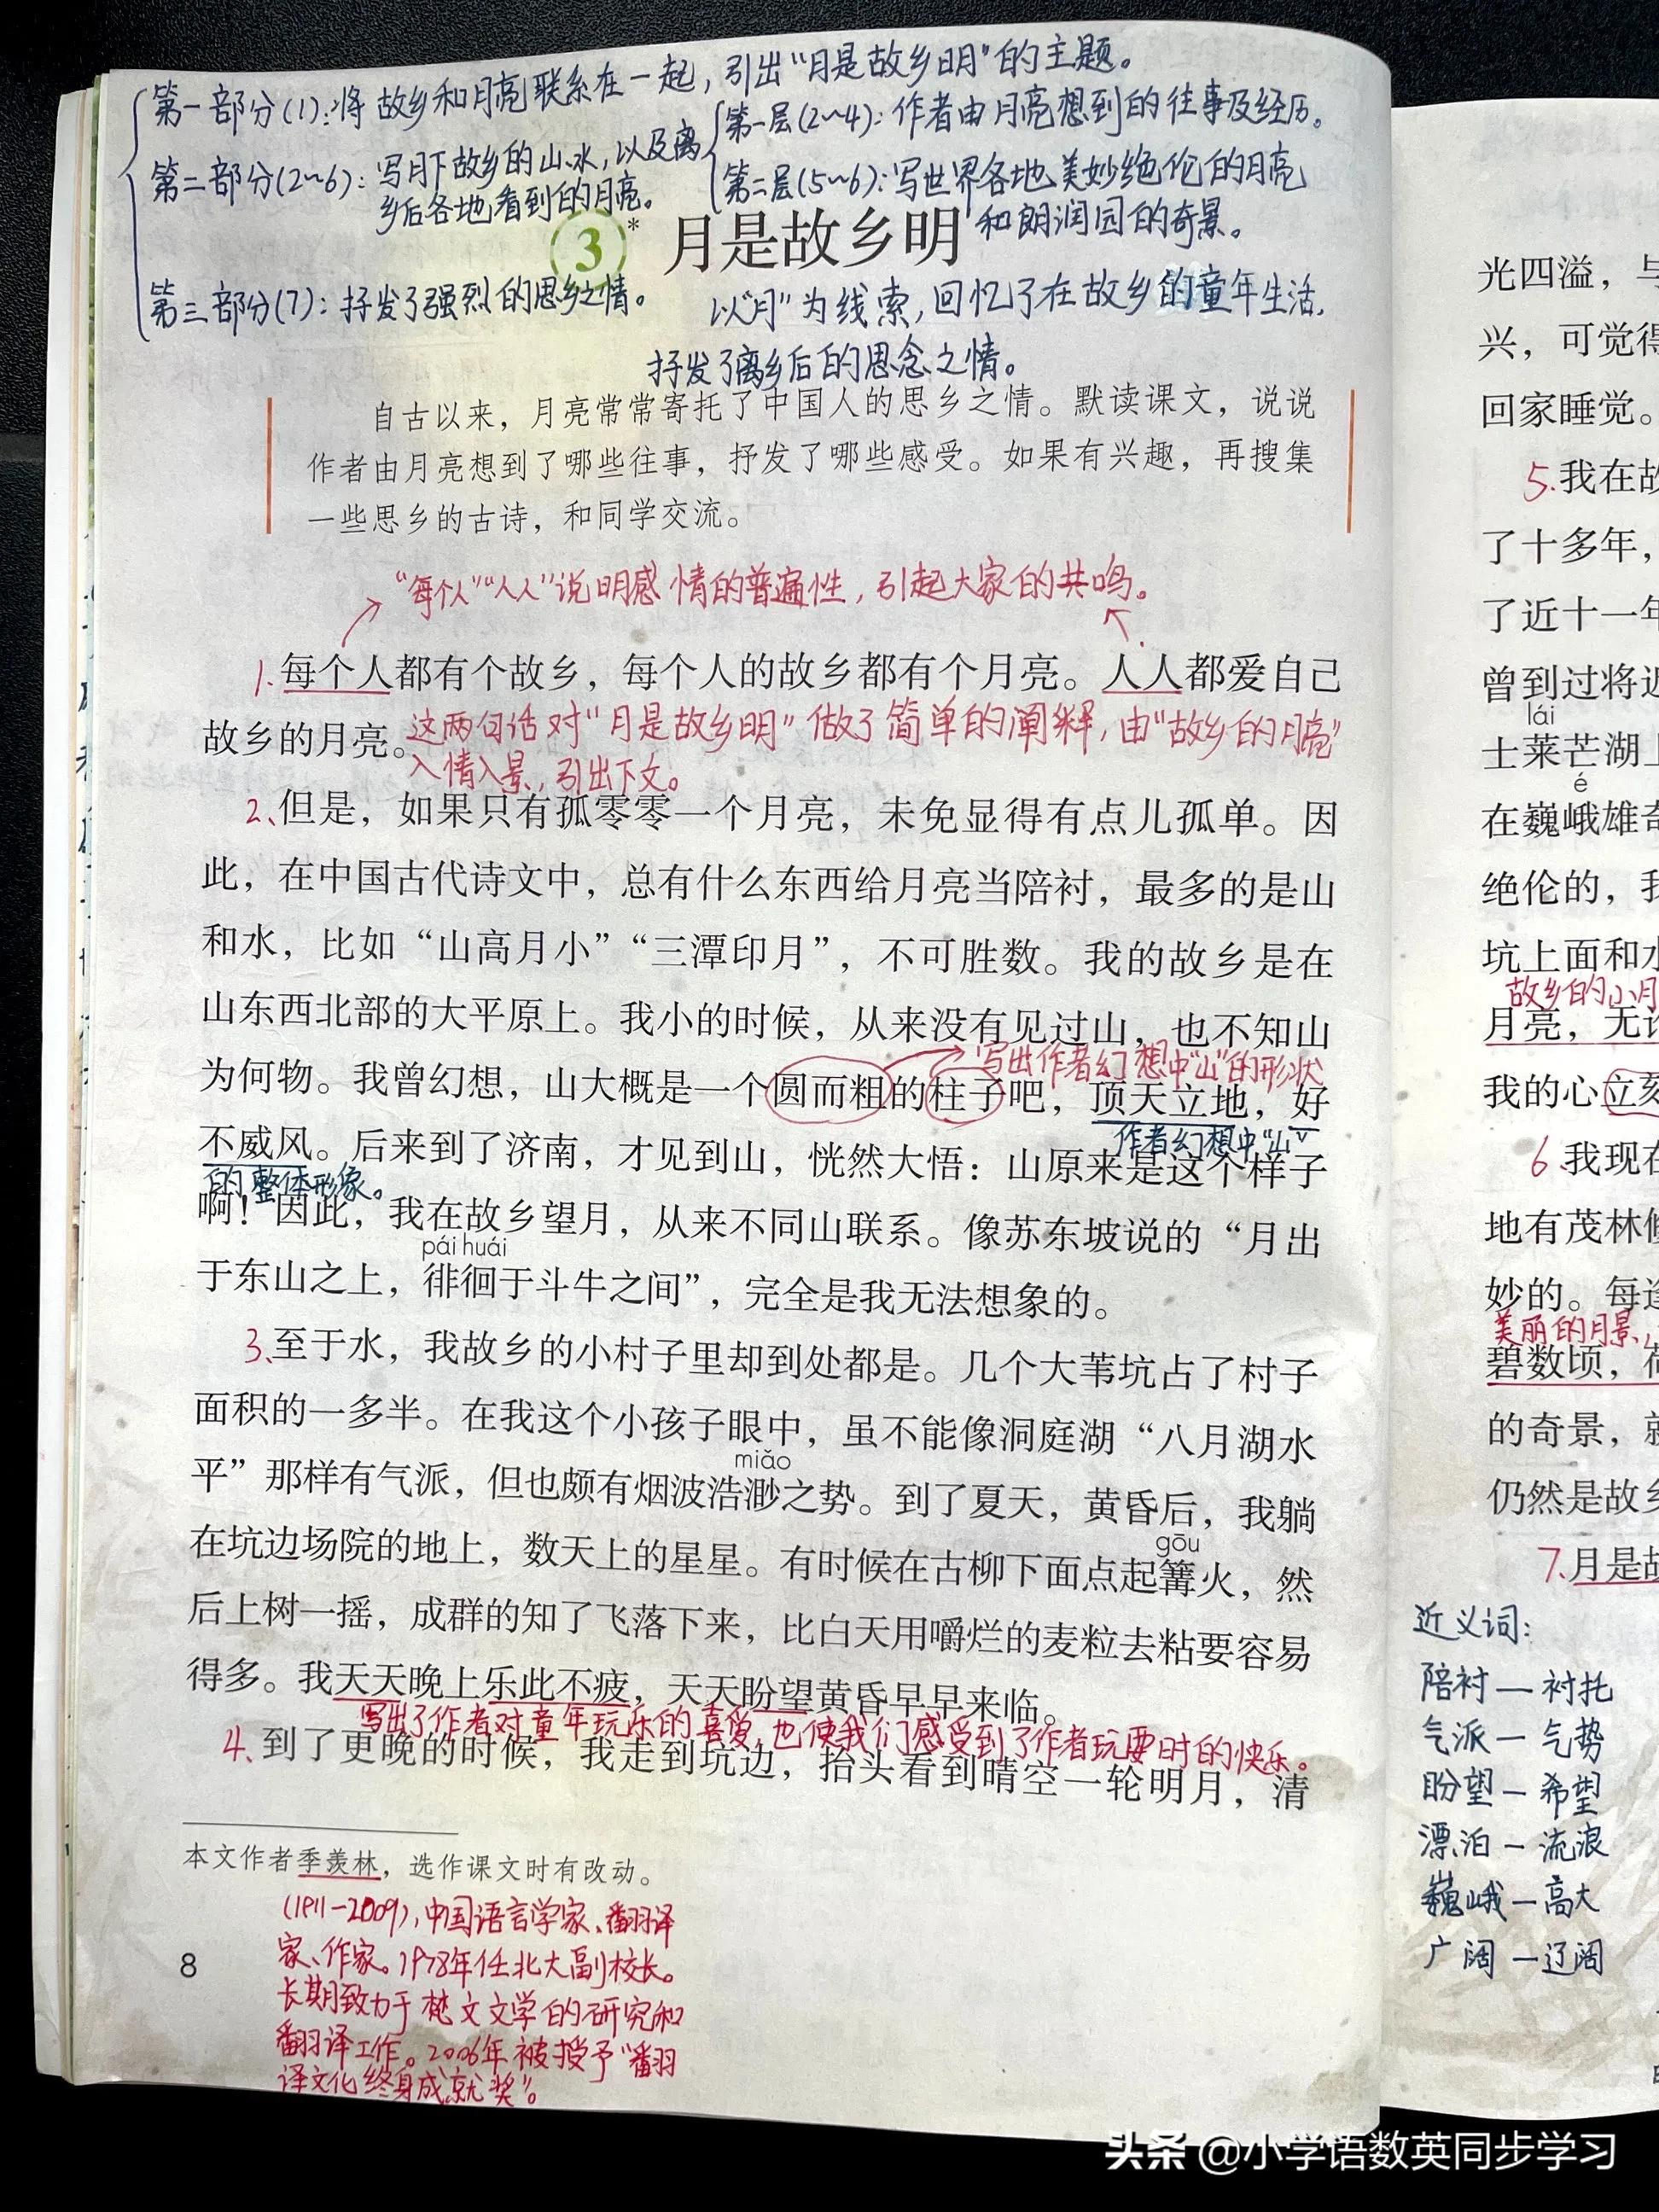 第一部分(1):将故乡和月亮联系在一起,引出“月是故乡明”的主题。
第二部分(2~6):写月下故乡的山、水,以及离
乡后各地看到的月亮。
第一层(2~4):作者由月亮想到的往事及经历。
第二层(5~6):写世界各地美妙绝伦的月亮
和朗润园的奇景。
3* 月是故乡明
第三部分(7):抒发了强烈的思乡之情。
以“月”为线索,回忆了在故乡的童年生活,
抒发了离乡后的思念之情。
自古以来,月亮常常寄托了中国人的思乡之情。默读课文,说说
作者由月亮想到了哪些往事,抒发了哪些感受。如果有兴趣,再搜集
一些思乡的古诗,和同学交流。
“每个人”“人人”说明感情的普遍性,引起大家的共鸣。
1.每个人都有个故乡,每个人的故乡都有个月亮。人人都爱自己
故乡的月亮。
这两句话对“月是故乡明”做了简单的阐释,由“故乡的月亮”
入情入景,引出下文。
2、但是,如果只有孤零零一个月亮,未免显得有点儿孤单。因
此,在中国古代诗文中,总有什么东西给月亮当陪衬,最多的是山
和水,比如“山高月小”“三潭印月”,不可胜数。我的故乡是在
山东西北部的大平原上。我小的时候,从来没有见过山,也不知山
写出作者幻想中“山”的形状
为何物。我曾幻想,山大概是一个圆而粗的柱子吧,顶天立地,好
作者幻想中“山”
不威风。后来到了济南,才见到山,恍然大悟:山原来是这个样子
的整体形象。
啊!因此,我在故乡望月,从来不同山联系。像苏东坡说的“月出
pái huái
于东山之上,徘徊于斗牛之间”,完全是我无法想象的。
3、至于水,我故乡的小村子里却到处都是。几个大苇坑占了村子
面积的一多半。在我这个小孩子眼中,虽不能像洞庭湖“八月湖水
miǎo
平”那样有气派,但也颇有烟波浩渺之势。到了夏天,黄昏后,我躺
在坑边场院的地上,数天上的星星。有时候在古柳下面点起篝火,然
gōu
后上树一摇,成群的知了飞落下来,比白天用嚼烂的麦粒去粘要容易
得多。我天天晚上乐此不疲,天天盼望黄昏早早来临。
写出了作者对童年玩乐的喜爱,也使我们感受到了作者玩耍时的快乐。
4、到了更晚的时候,我走到坑边,抬头看到晴空一轮明月,清
本文作者季羡林,选作课文时有改动。
(1911-2009),中国语言学家、翻译
家、作家。1978年任北大副校长。
长期致力于梵文文学的研究和
翻译工作。2006年被授予“翻
译文化终身成就奖”。
8
光四溢,与
兴,可觉得
回家睡觉。
5.我在故
了十多年,
了近十一年
曾到过将近
lái
士莱芒湖上
é
在巍峨雄奇
绝伦的,我
坑上面和水
故乡的小月
月亮,无论
我的心立刻
6、我现在
地有茂林修
妙的。每逢
美丽的月景,
碧数顷,荷
的奇景,就
仍然是故乡
7.月是故
近义词:
陪衬—衬托
气派—气势
盼望—希望
漂泊—流浪
巍峨—高大
广阔—辽阔
头条 @小学语数英同步学习